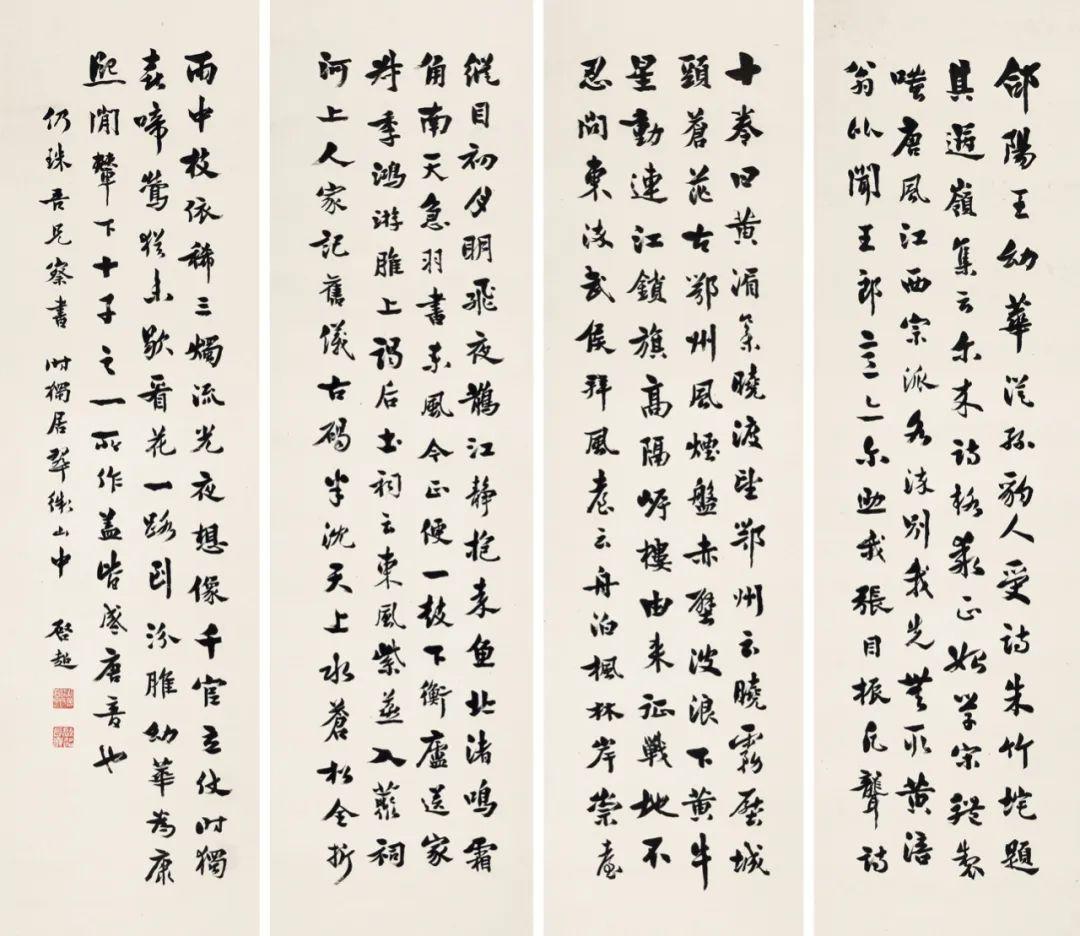 郃陽王幼華從孫豹人受詩朱竹垞題
其遊嶺集云尔来詩格乖正始學宋體製
嗤唐風江西宗派各流別我先無取黄涪
翁比聞王郎意亦尔助我張目振凡聾詩
十卷曰黄湄集曉渡望鄂州云曉霧壓城
頭蒼茫古鄂州風煙盤赤壁波浪下黄牛
星動連江鎖旗高隔岸樓由来征戰地不
忍問東流武侯拜風臺云舟泊楓林岸崇臺
縱目初夕明飛夜鵲江静抱来魚北渚鳴霜
角南天急羽書東風今正便一鼓下衡廬送家
叔季鴻游脽上謁后土祠云東風紫燕入祠
河上人家記舊儀古碣半沈天上水蒼松全折
雨中枝依稀三燭流光夜想像千官立仗时獨
喜啼鶯猶未歇看花一路到汾脽幼華為康
熙間輦下十子之一所作蓋皆盛唐音也
仍珠吾兄察書 时獨居翠微山中 啓超